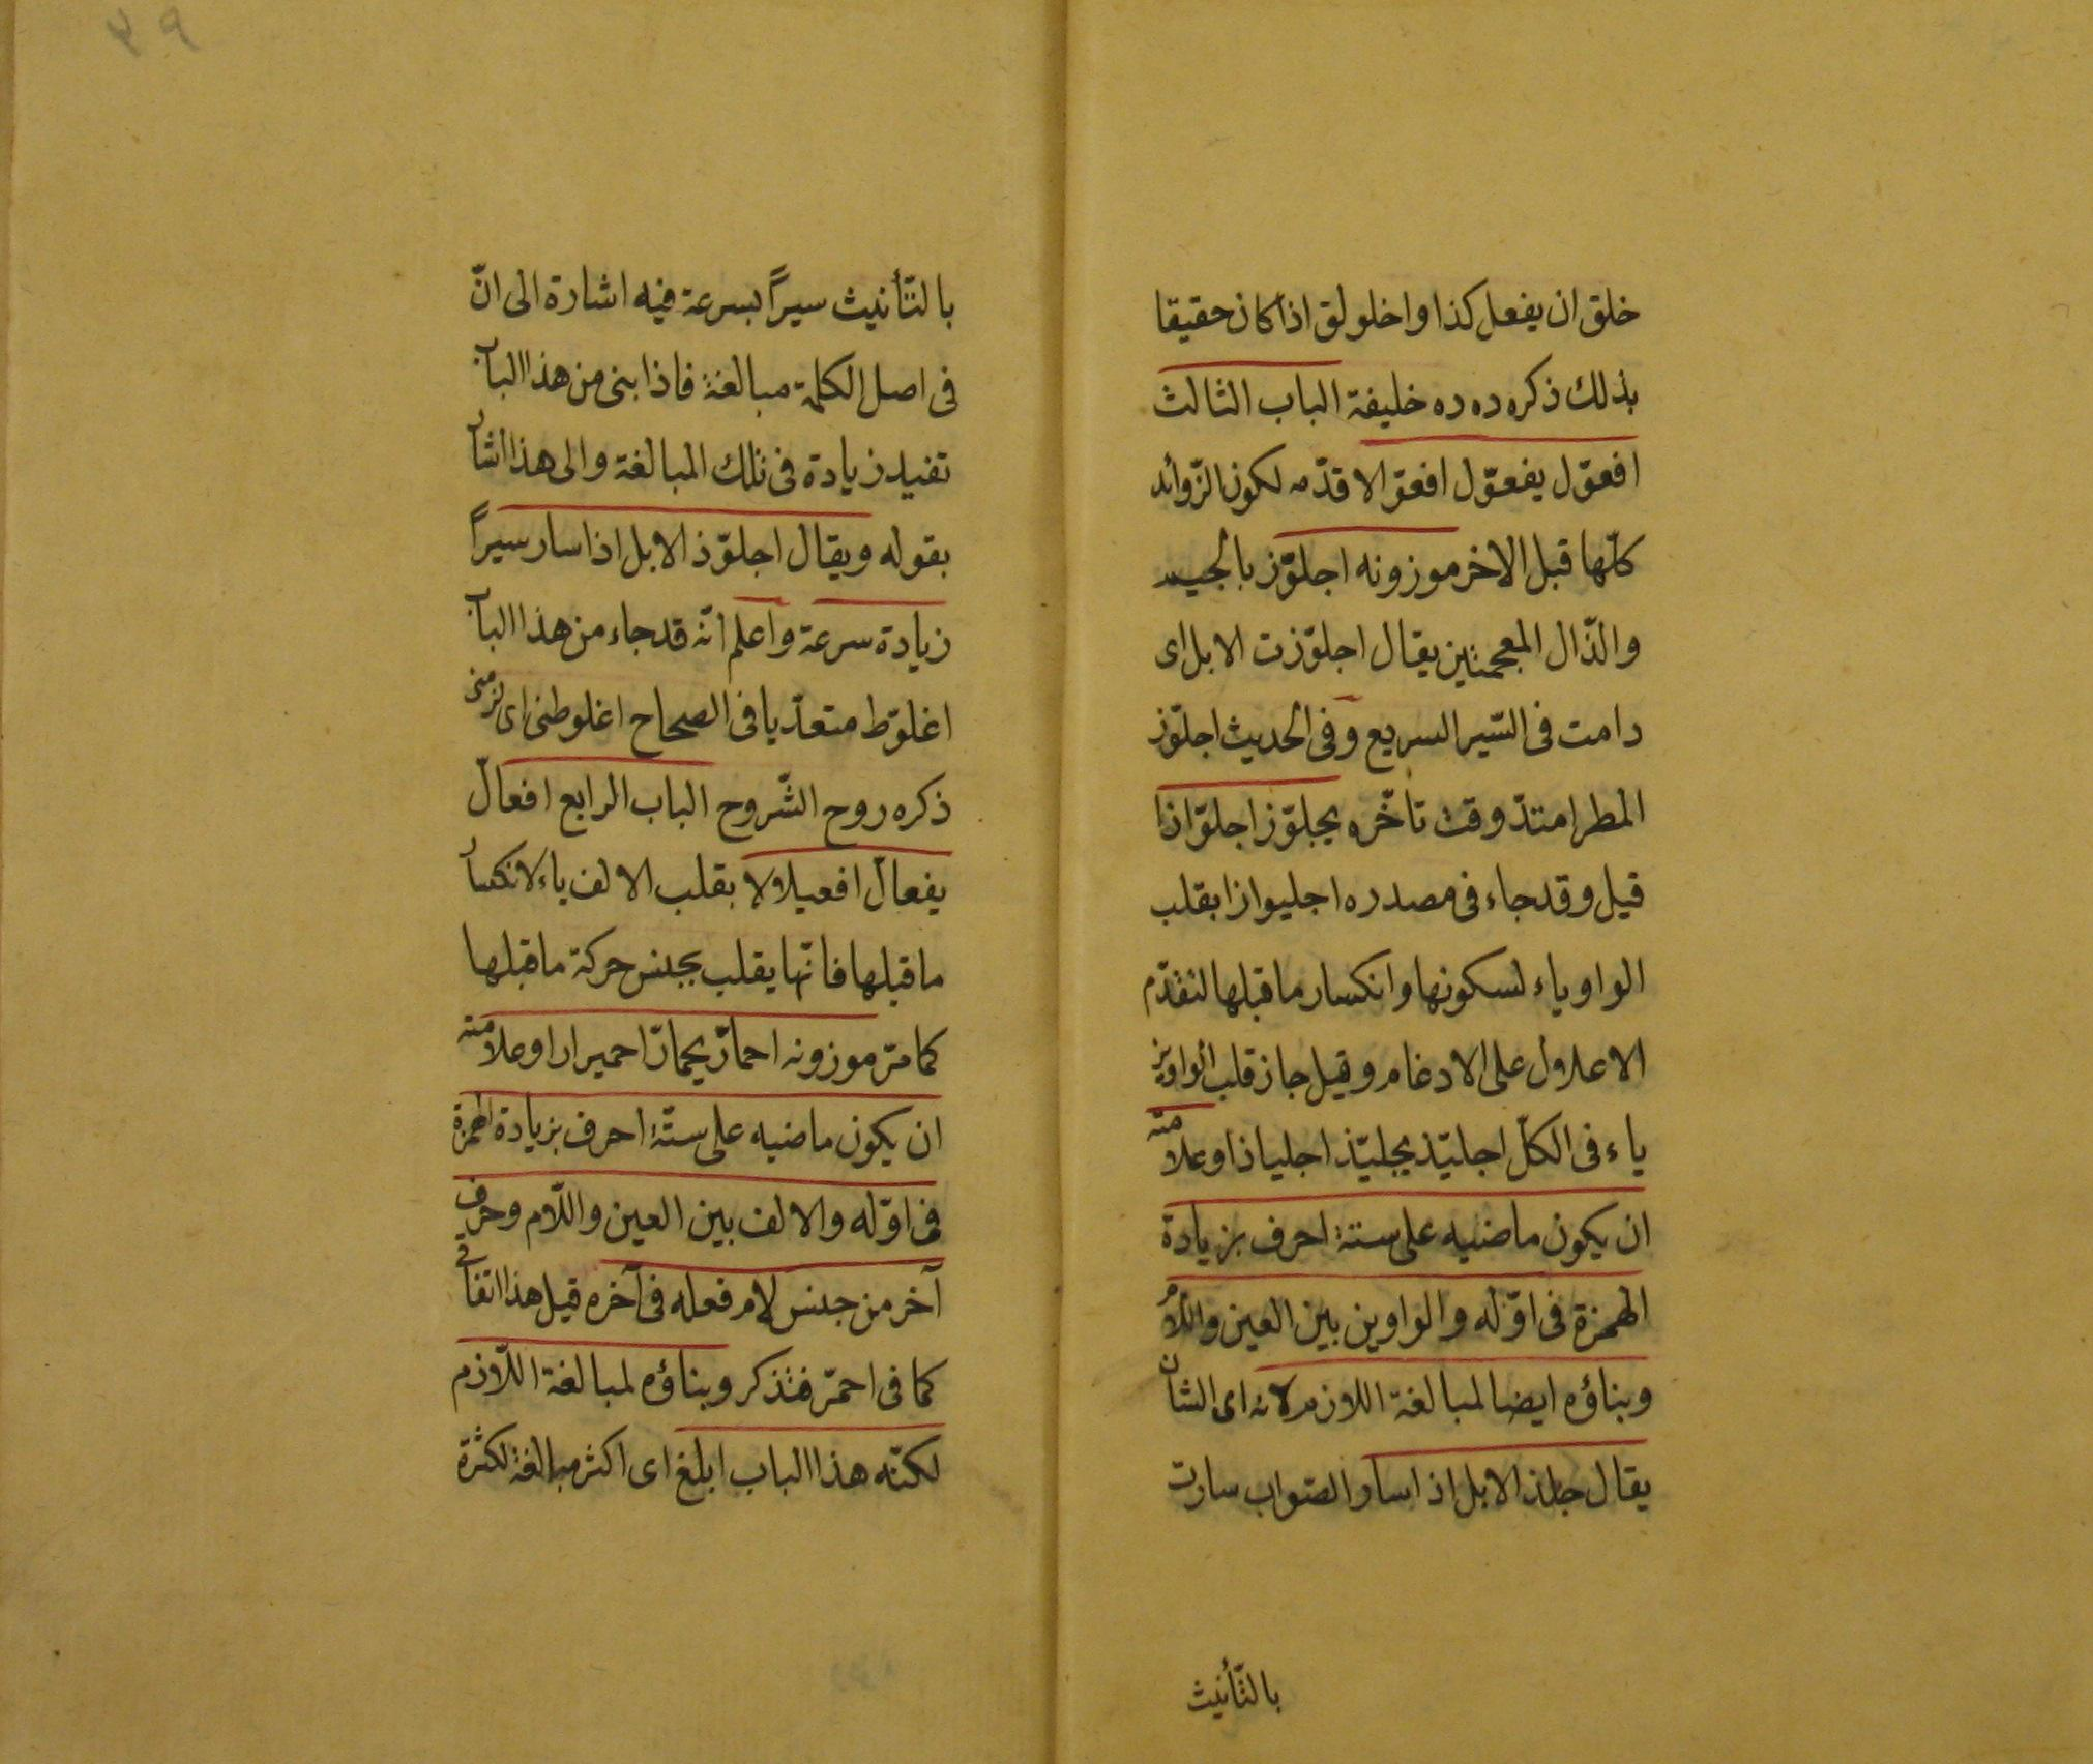 خلق ان يفعل كذا واخلولق اذا كان حقيقا
بذلك ذكره ده ده خليفة الباب الثالث
افعوّل يفعوّل افعوّالا قدّمه لكون الزّوائد
كلّها قبل الاخر موزونه اجلوّز بالجيم
والذّال المعجمتين يقال اجلوّزت الابل اى
دامت فى السّير السريع وفى الحديث اجلوّز
المطر امتدّ وقت تأخّره يجلوّز اجلوّاذا
قيل وقد جاء فى مصدره اجليواذا بقلب
الواو ياء لسكونها وانكسار ما قبلها لتقدّم
الاعلاول على الادغام وقيل جاز قلب الواوين
ياء فى الكلّ اجليّذ يجليّذ اجلياذا وعلامته
ان يكون ماضيه على ستة احرف بزيادة
الهمزة فى اوّله والواوين بين العين واللام
وبناؤه ايضا لمبالغة اللازم لانه اى الشان
يقال جلذ الابل اذا سار والصّواب سارت
بالتّأنيث
٤٩
بالتّأنيث سيرًا بسرعة فيه اشارة الى انّ
فى اصل الكلمة مبالغة فاذا بنى من هذا الباب
تفيد زيادة فى تلك المبالغة والى هذا اشار
بقوله ويقال اجلوّذ الابل اذا سار سيرًا
زيادة سرعة واعلم انّه قد جاء من هذا الباب
اغلوّط متعدّيا فى الصحاح اغلوطنى اى لزمنى
ذكره روح الشّروح الباب الرابع افعالّ
يفعالّ افعيلالا بقلب الالف ياء لانكسار
ما قبلها فانّها يقلب بجنس حركة ما قبلها
كما مرّ موزونه احمارّ يحمارّ احميرارا وعلامته
ان يكون ماضيه على ستّة احرف بزيادة الهمزة
فى اوّله والالف بين العين واللّام وحرف
آخر من جنس لام فعله فى آخره قيل هذا اتفاقى
كما فى احمرّ فتذكر وبناؤه لمبالغة اللّازم
لكنّه هذا الباب ابلغ اى اكثر مبالغة لكثرة